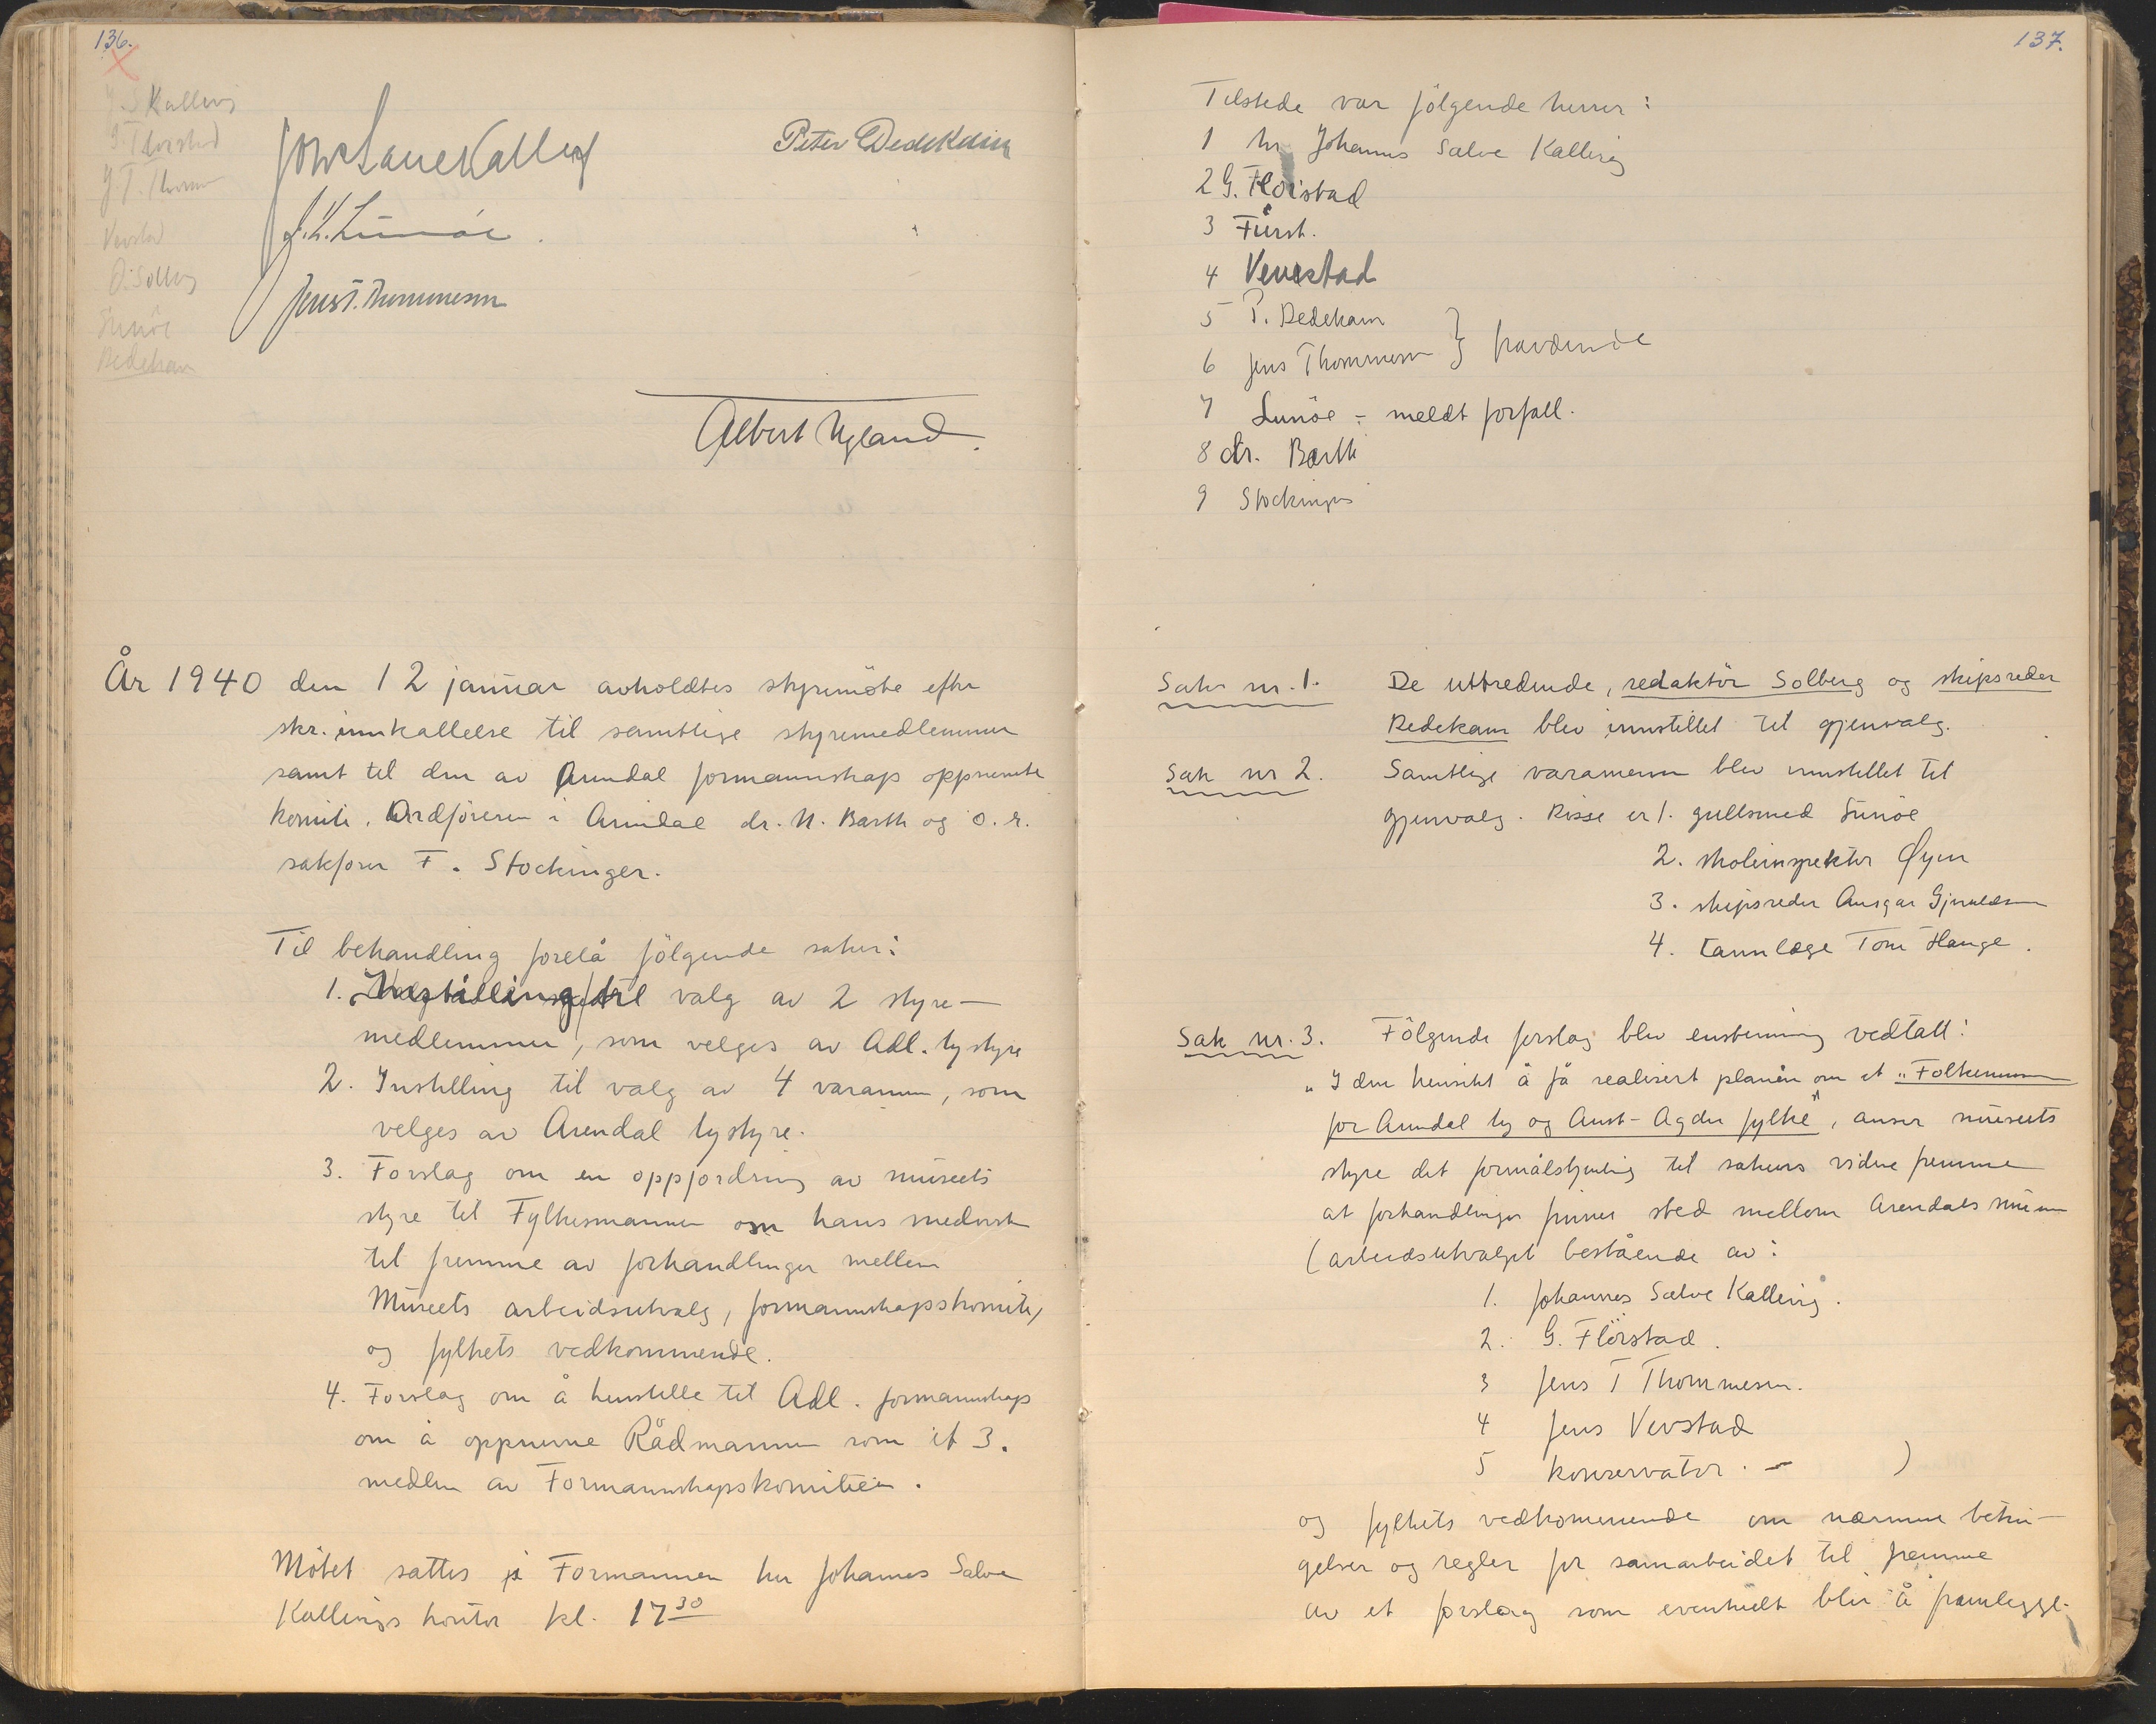 136.
J. S Kallevig
G. Florstad
J T. Thomm
Vevstad
O. Solberg
Lunöe
Dedekam
Johs Salve Kallevig
Peter Dedekam
J. K. Lunöe.
Jens T. Thommesen
Albert Ugland.
År 1940 den 12 januar avholdtes styremöte efter
skr. innkallelse til samtlige styremedlemmer
samt til den av Arendal formannskap oppnevnte
komite. Ordföreren i Arendal dr. N. Barth og o. r.
sakförer F. Stockinger.
Til behandling forelå fölgende saker:
1. Innstilling til valg av 2 styre-
medlemmer, som velges av Adl. bystyre
2. Instilling til valg av 4 varamen, som
velges av Arendal bystyre.
3. Forslag om en oppfordring av museets
styre til Fylkesmannen om hans medvirken
til fremme av forhandlinger mellem
Museets arbeidsutvalg, formannskapskomite,
og fylkets vedkommende.
4. Forslag om å henstille til Adl. formannskap
om å oppnevne Rådmannen som et 3.
medlem av Formannskapskomiteen.
Mötet sattes på Formannen her Johannes Salve
Kallevigs kontor kl. 17 30
137.
Tilstede var fölgende herrer:
1 hr Johannes Salve Kallevig
2 G. Floistad
3 Fürst.
4 Vevstad
5 P. Dedekam
6 Jens Thommesen } fraværende
7 Lunöe - meldt forfall.
8 dr. Barth
9 Stockinger
Saker nr. 1. De uttredende, redaktör Solberg og skipsreder
Dedekam blev innstillet til gjenvalg.
Sak nr 2. Samtlige varamenn blev innstillet til
gjenvalg. Disse er 1. gullsmed Lunöe
2. skoleinspektör Øyen
3. skipsreder Ansgar Gjeruldsen
4. tannlæge Tom Hauge.
Sak nr. 3. Fölgende forslag blev enstemmig vedtatt:
"I den hensikt å få realisert planen om et "Folkemuseum
for Arendal by og Aust-Agder fylke", anser museets
styre det formålstjenlig til sakens videre fremme
at forhandlinger finner sted mellem Arendals museum
(arbeidsutvalget bestående av:
1. Johannes Salve Kallevig.
2. G. Flöistad.
3 Jens T Thommesen.
4 Jens Vevstad
5 konservator. - )
og fylkets vedkommende om nærmere betin-
gelser og regler for samarbeidet til fremme
av et forslag som eventuelt blir å fremlegge.